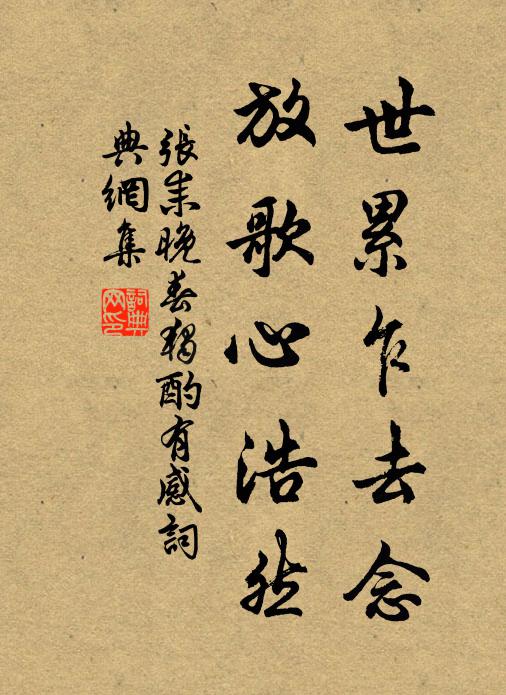 世累乍去念
放歌心浩然
張耒晚春獨酌有感詞
典網集
詞典
网印